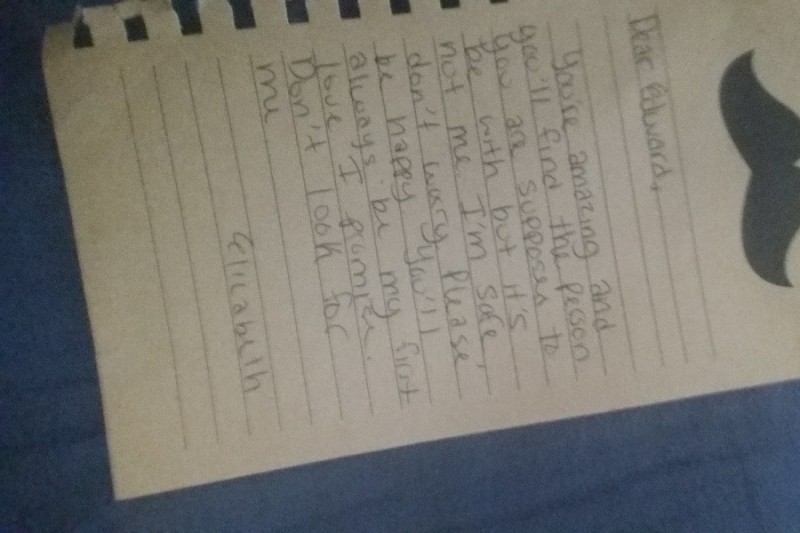 Dear Edward,
You're amazing and
you'll find the person
you are supposen to
be with but it's
not me I'm safe,
don't worry please
be happy you'll
always be my first
love I promise.
Don't look for
me
Elizabeth